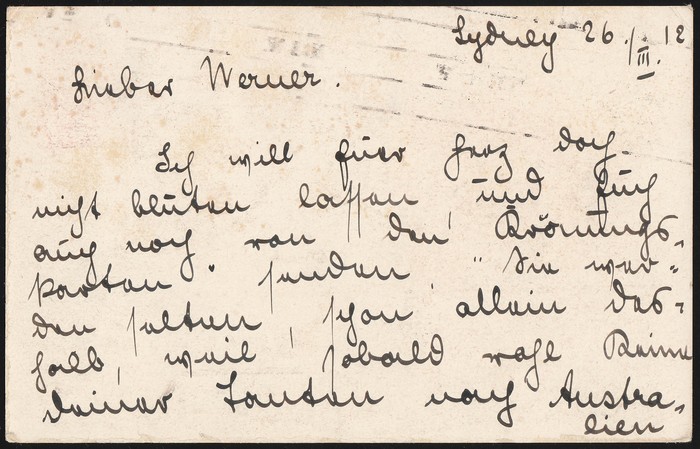 Sydney 26./III. 12
Lieber Werner.
Ich will Euer Herz doch
nicht bluten lassen, und Euch
auch noch von den "Krönungs-
karten" senden. "Sie wer-
den selten, schon allein des-
halb, weil sobald wohl Keine
deiner Tanten nach Austra-
lien